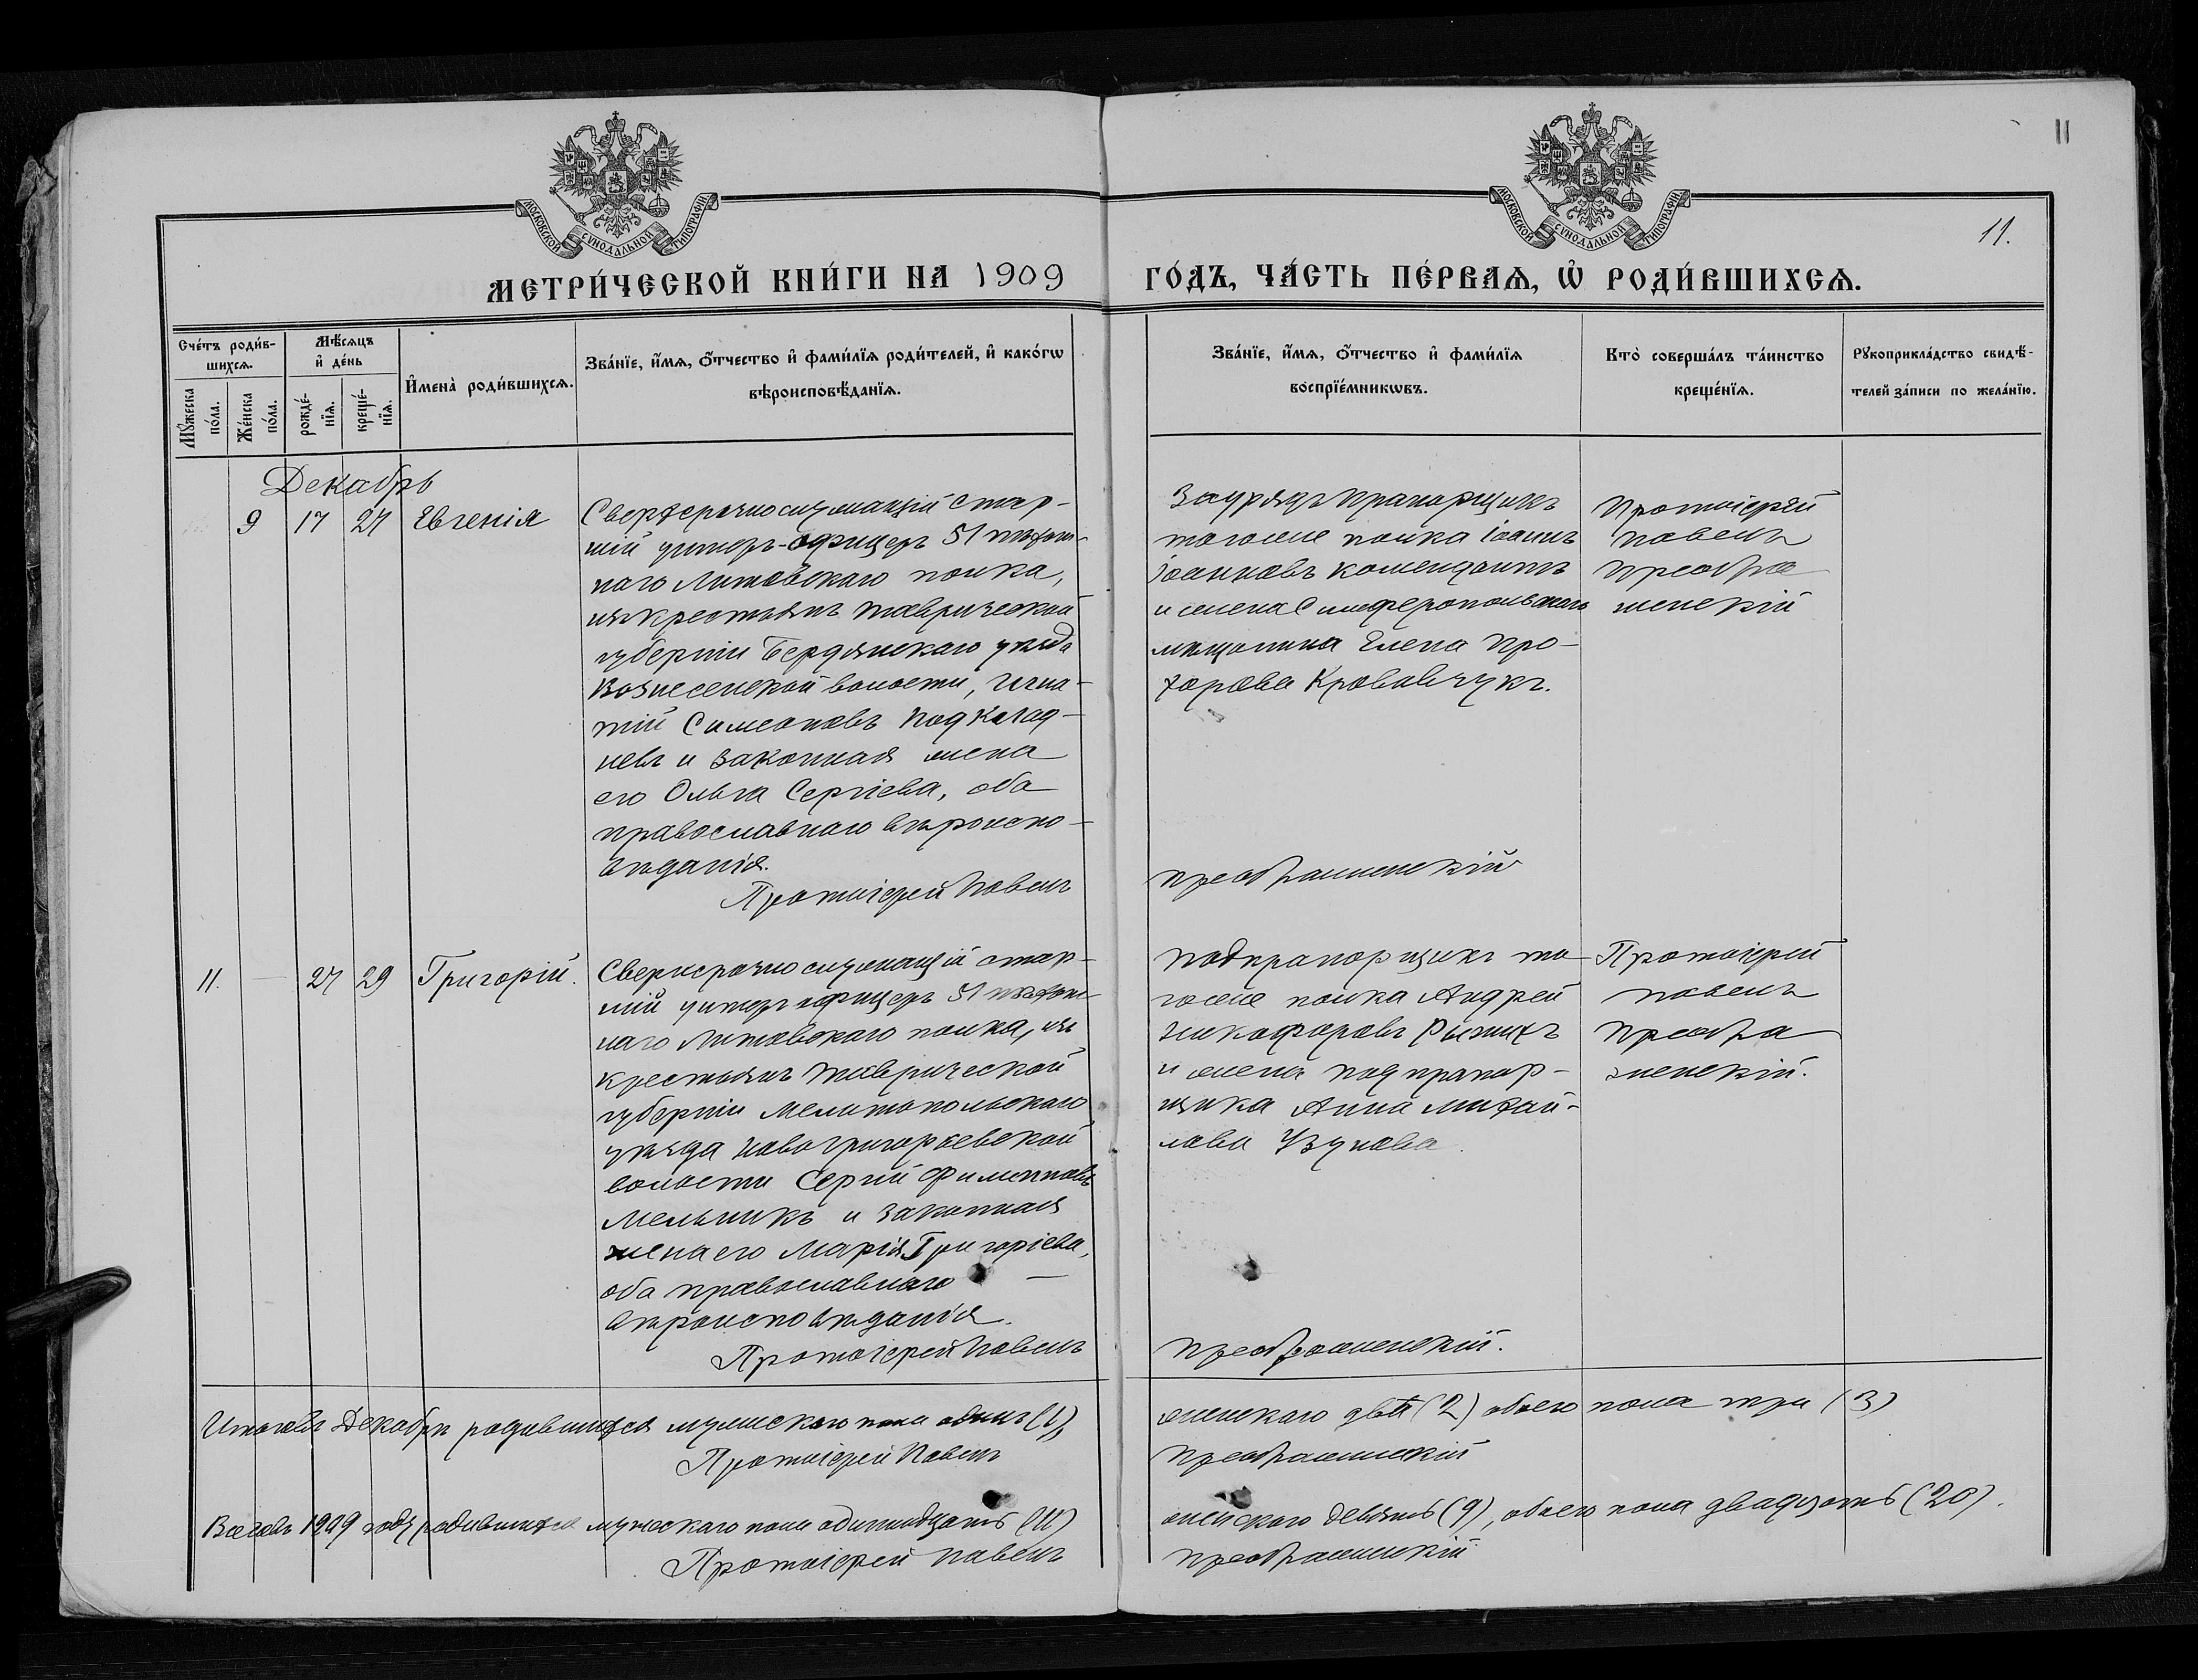 МОСКОВСКОЙ СѴНОДАЛЬНОЙ ТИПОГРАФІИ
МОСКОВСКОЙ СѴНОДАЛЬНОЙ ТИПОГРАФІИ
11
11.
МЕТРИ́ЧЕСКОЙ КНИ́ГИ НА 1909 ГО́ДЪ, ЧА́СТЬ ПЕ́РВАѦ, Ѡ҆ РОДИ́ВШИХСѦ.
Сче́тъ роди́в-
шихсѧ.
Мꙋ́жеска по́ла.
Же́нска по́ла.
Мѣ́сѧцъ
и҆ де́нь
рожде́-
нїѧ.
креще́-
нїѧ.
И҆мена̀ роди́вшихсѧ.
Зва́нїе, и҆́мѧ, ѻ҆́тчество и҆ фами́лїѧ роди́телей, и҆ како́гѡ
вѣроисповѣ́данїѧ.
Зва́нїе, и҆́мѧ, ѻ҆́тчество и҆ фами́лїѧ
воспрїе́мникѡвъ.
Кто̀ соверша́лъ та́инство
креще́нїѧ.
Рꙋкоприкла́дство свидѣ́-
телей за́писи по жела́нїю.
Декабрь
9 17 27 Евгенія
Сверхсрочнослужащій стар-
шій унтеръ-офицеръ 51 пѣхот-
наго Литовскаго полка,
изъ крестьянъ Таврической
губерніи Бердянскаго уѣзда
Вознесенской волости, Игна-
тій Симеоновъ Подклад-
невъ и законная жена
его Ольга Сергіева, оба
православнаго вѣроиспо-
вѣданія.
Протоіерей Павелъ
Заурядъ прапорщикъ
тогоже полка Іоаннъ
Іоанновъ Комендантъ
и жена Симферопольскаго
мѣщанина Елена Про-
хорова Кровавчукъ.
Преображенскій
Протоіерей
Павелъ
Преобра
женскій
11. — 27 29 Григорій.
Сверхсрочно служащій стар-
шій унтеръ офицеръ 51 пѣхот-
наго Литовскаго полка, изъ
крестьянъ Таврической
губерніи Мелитопольскаго
уѣзда Новогригорьевской
волости Сергій Филипповъ
Мельникъ и законная
жена его Марія Григоріева,
оба православнаго —
вѣроисповѣданія.
Протоіерей Павелъ
Подпрапорщикъ то-
гоже полка Андрей
Никифоровъ Рыжихъ
и жена подпрапор-
щика Анна Михай-
лова Узунова.
Преображенскій.
Протоіерей
Павелъ
Преобра
женскій.
Итого въ Декабрѣ родившихся мужскаго пола одинъ (1), женскаго двѣ (2) обоего пола три (3)
Протоіерей Павелъ Преображенскій
Всего въ 1909 году родившихся мужескаго пола одиннадцать (11) женскаго девять (9), обоего пола двадцать (20).
Протоіерей Павелъ Преображенскій